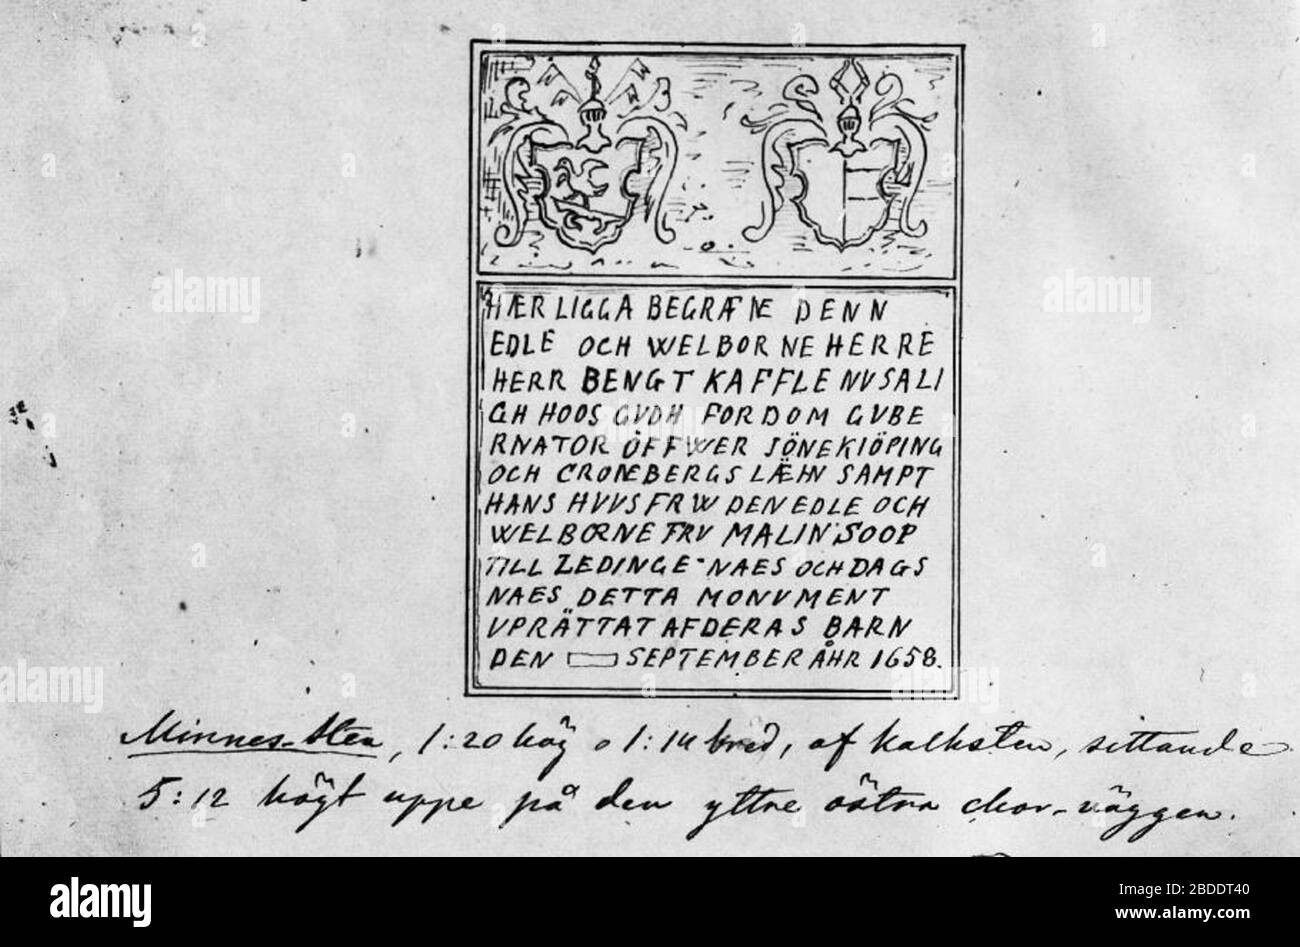 HÆR LIGGA BEGRÆNE DENN
EDLE OCH WELBORNE HERRE
HERR BENGT KAFFLE NUSALI
GH HOOS GUDH FORDOM GVBE
RNATOR ÖFFWER JÖNEKIÖPING
OCH CRONEBERGS LÆHN SAMPT
HANS HVVSFRW DEN EDLE OCH
WELBORNE FRV MALIN SOOP
TILL ZEDINGE-NAES OCH DAGS
NAES DETTA MONVMENT
VPRÄTTAT AF DERAS BARN
DEN SEPTEMBER ÅHR 1658.
Minnes-sten, 1:20 hög o 1:14 bred, af kalksten, sittande
5:12 högt uppe på den yttre östra chor-väggen.
alamy
Image ID: BDDDT40
www.alamy.com